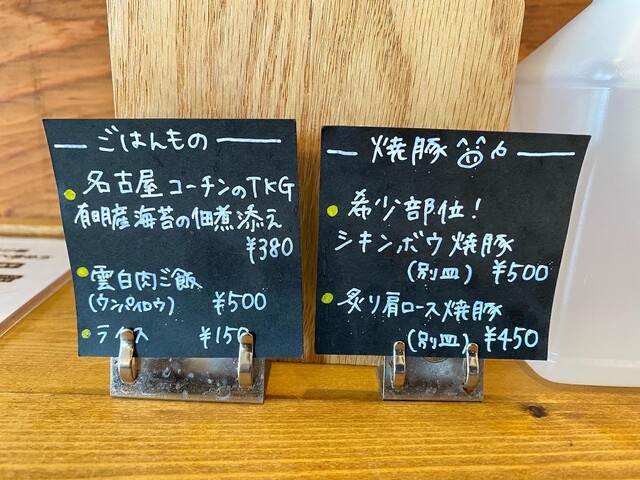 ごはんもの
名古屋コーチンのTKG
有明産海苔の佃煮添え
¥380
雲白肉ご飯
(ウンパイロウ) ¥500
ライス ¥150
焼豚
希少部位!
シキンボウ焼豚
(別皿) ¥500
炙り肩ロース焼豚
(別皿) ¥450